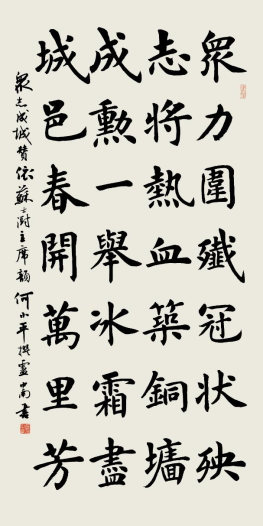 眾力圍殲冠状殃
志將熱血築銅墻
成勳一舉冰霜盡
城邑春開萬里芳
眾志成城贊依蘇士澍主席韻何小平撰靈南書